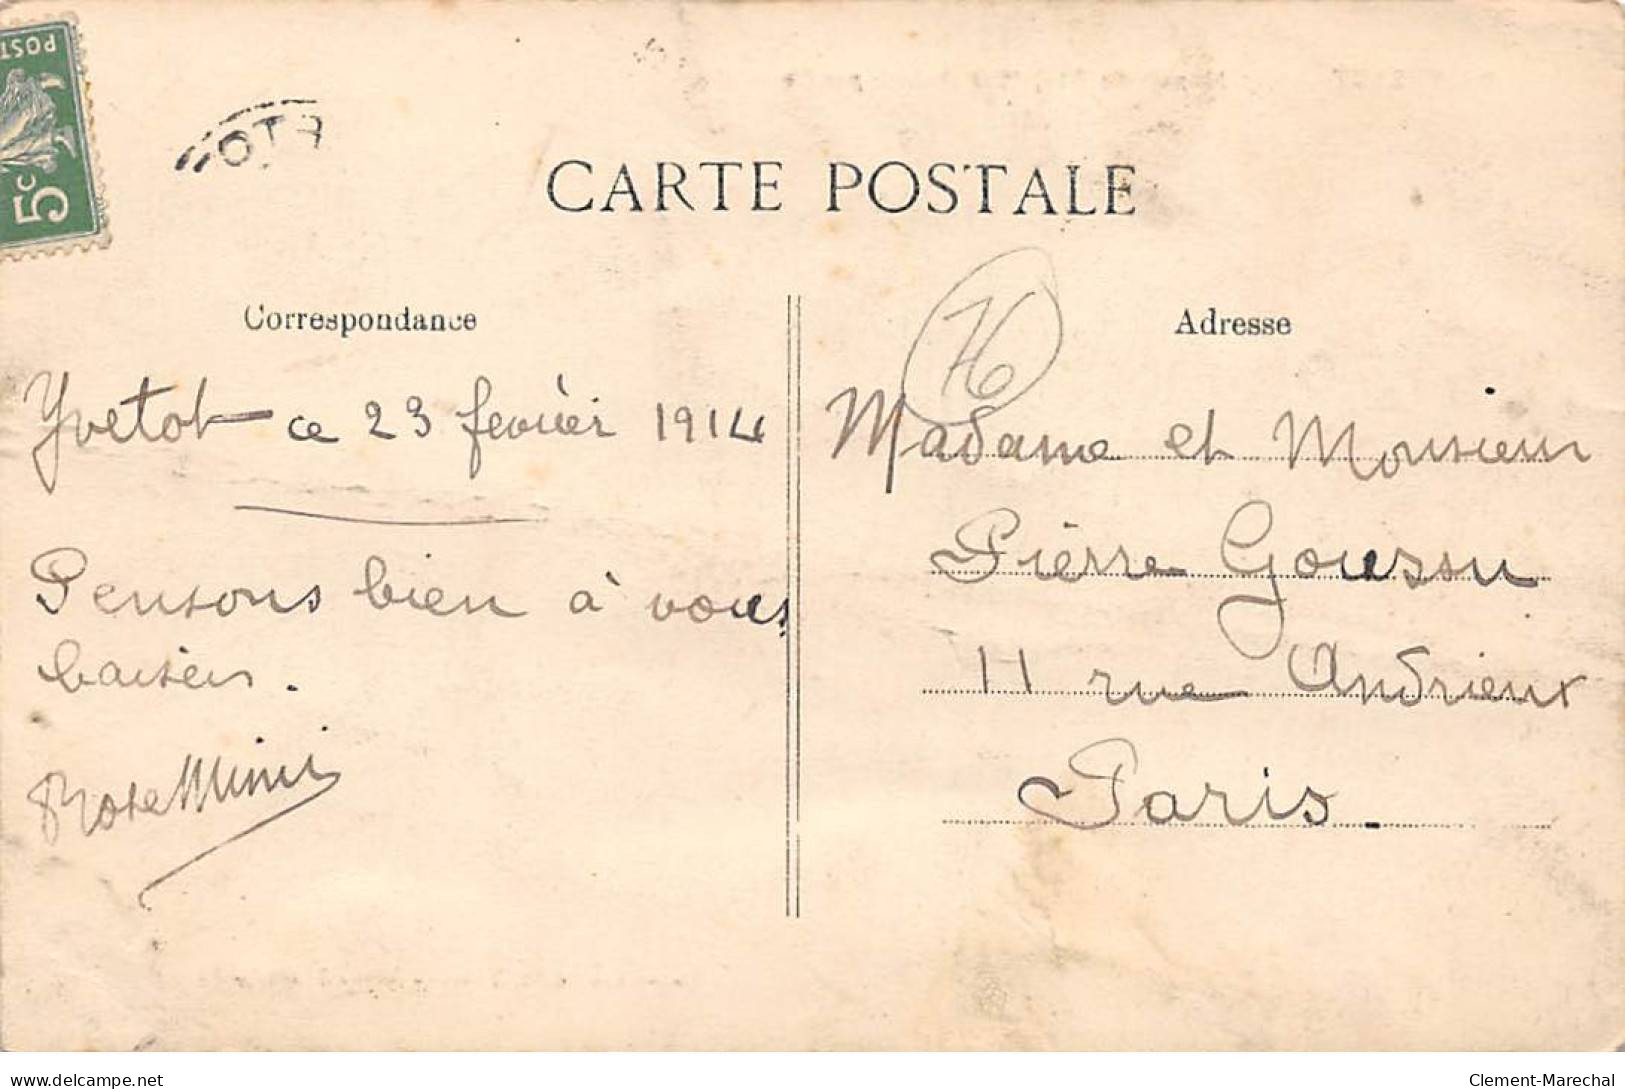 POST
5c
CARTE POSTALE
Correspondance
Yvetot ce 23 fevrier 1914
Pensons bien à vous
baisers.
Adresse
76
Madame et Monsieur
Pierre Goussu
11 rue Andrieux
Paris.
delcampe.net
Clement-Marechal